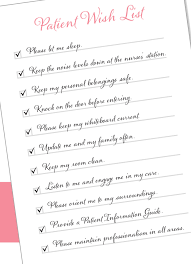 Patient Wish List
Please let me sleep.
Keep the noise levels down at the nurses station.
Keep my personal belongings safe.
Knock on the door before entering.
Please keep my whiteboard current.
Update me and my family often.
Keep my room clean.
Listen to me and engage me in my care.
Please orient me to my surroundings.
Provide a Patient Information Guide.
Please maintain professionalism in all areas.